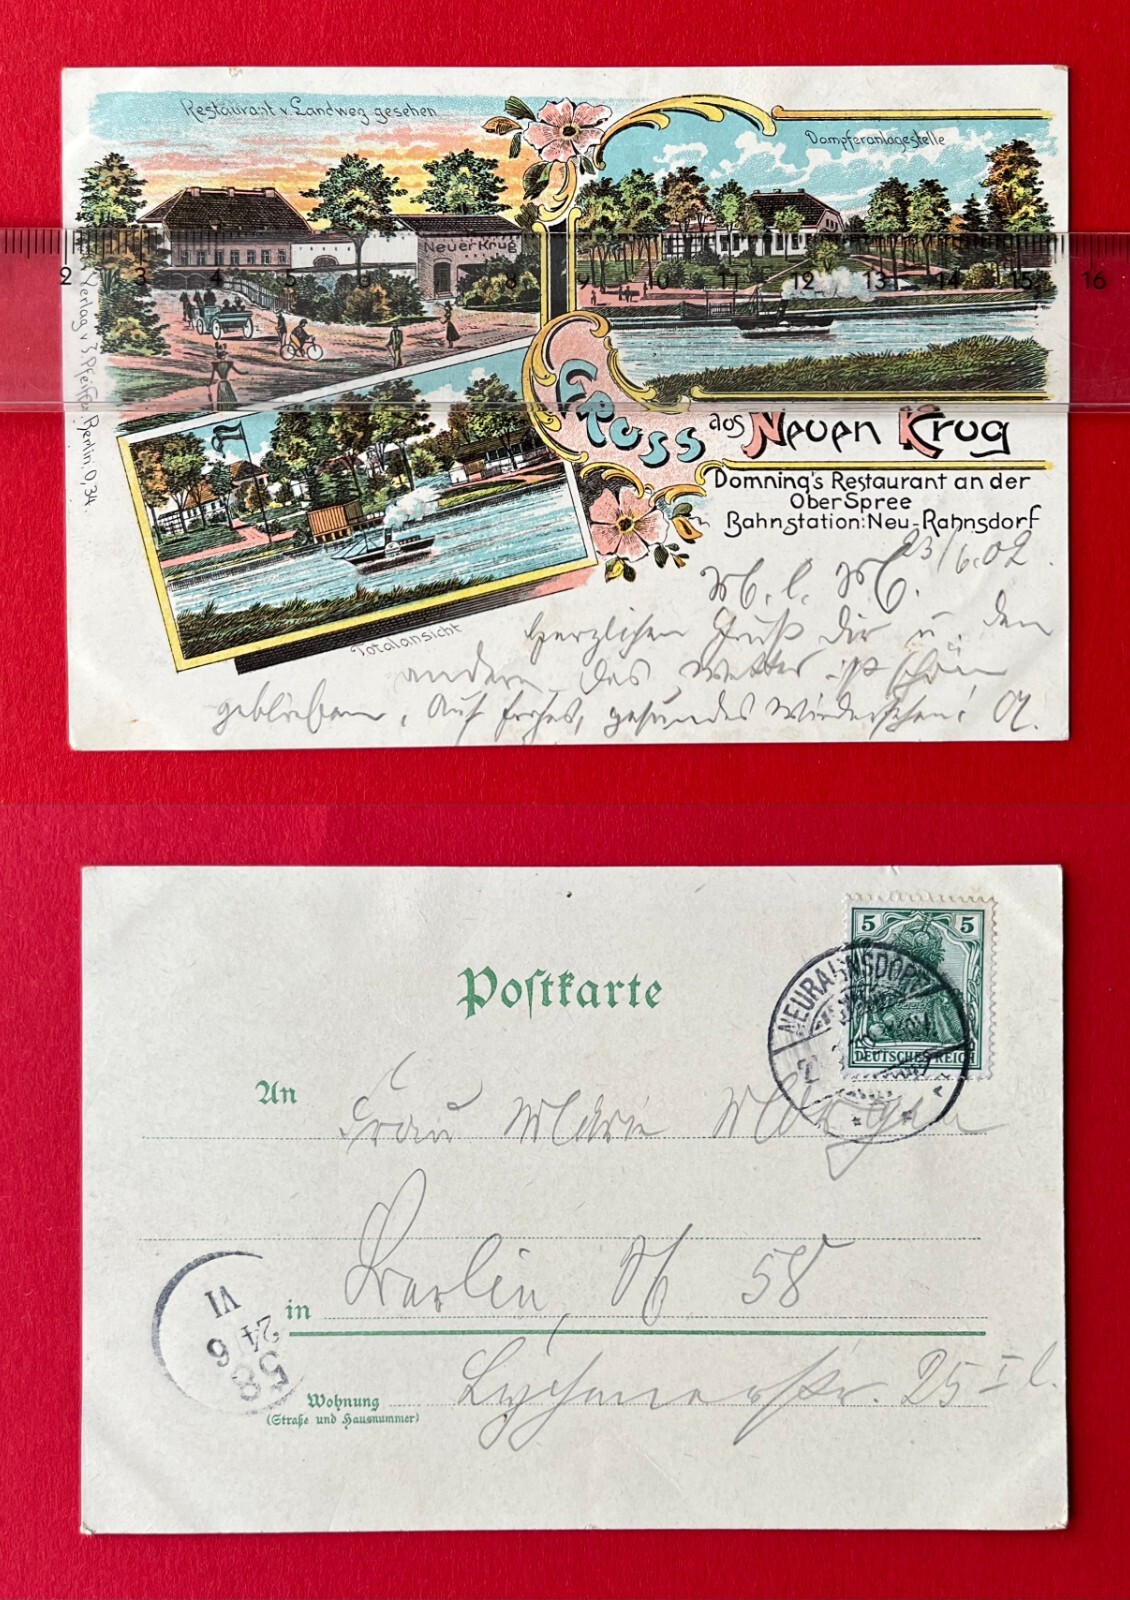 Restaurant v. Landweg gesehen
Dampferanlagestelle
Neuer Krug
2 3 4 5 6 7 8 9 10 11 12 13 14 15 16
Verlag v. J. Pfeiffer, Berlin, O, 34.
Gruss aus Neuen Krug
Domning's Restaurant an der
Ober Spree
Bahnstation: Neu-Rahnsdorf
Totalansicht
23/6.02.
M. l. M.
Herzlichen Gruß dir u. den
andern. Das Wetter ist schön
geblieben. Auf frohes, gesundes Wiedersehen!
Postkarte
5 5
DEUTSCHES REICH
NEURAHNSDORF
An Frau Marie
in Berlin, N 58
58
24 6
VI
Wohnung Lychenerstr. 25 I l.
(Straße und Hausnummer)